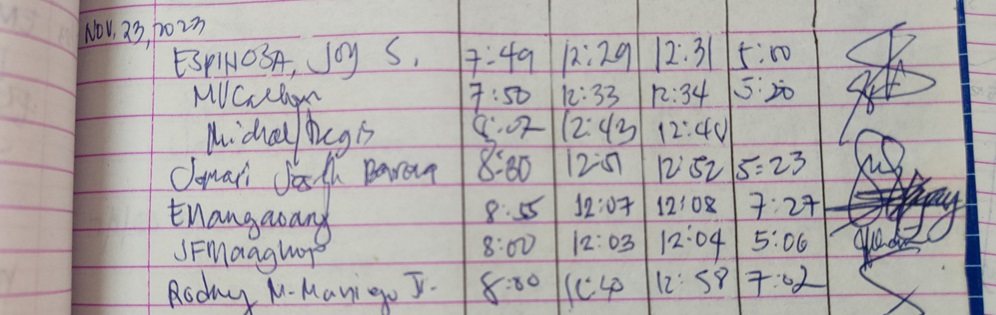 NOV. 23, 2023
ESPINOSA, Joy S. 7:49 12:29 12:31 5:00
7:50 12:33 12:34 5:20
Michael Regis 8:07 12:43 12:44
Jomari Joseph 8:00 12:51 12:52 5:23
EMangaoang 8:55 12:07 12:08 7:27
8:00 12:03 12:04 5:06
Rodney M. Maniego Jr. 8:00 12:58 7:02